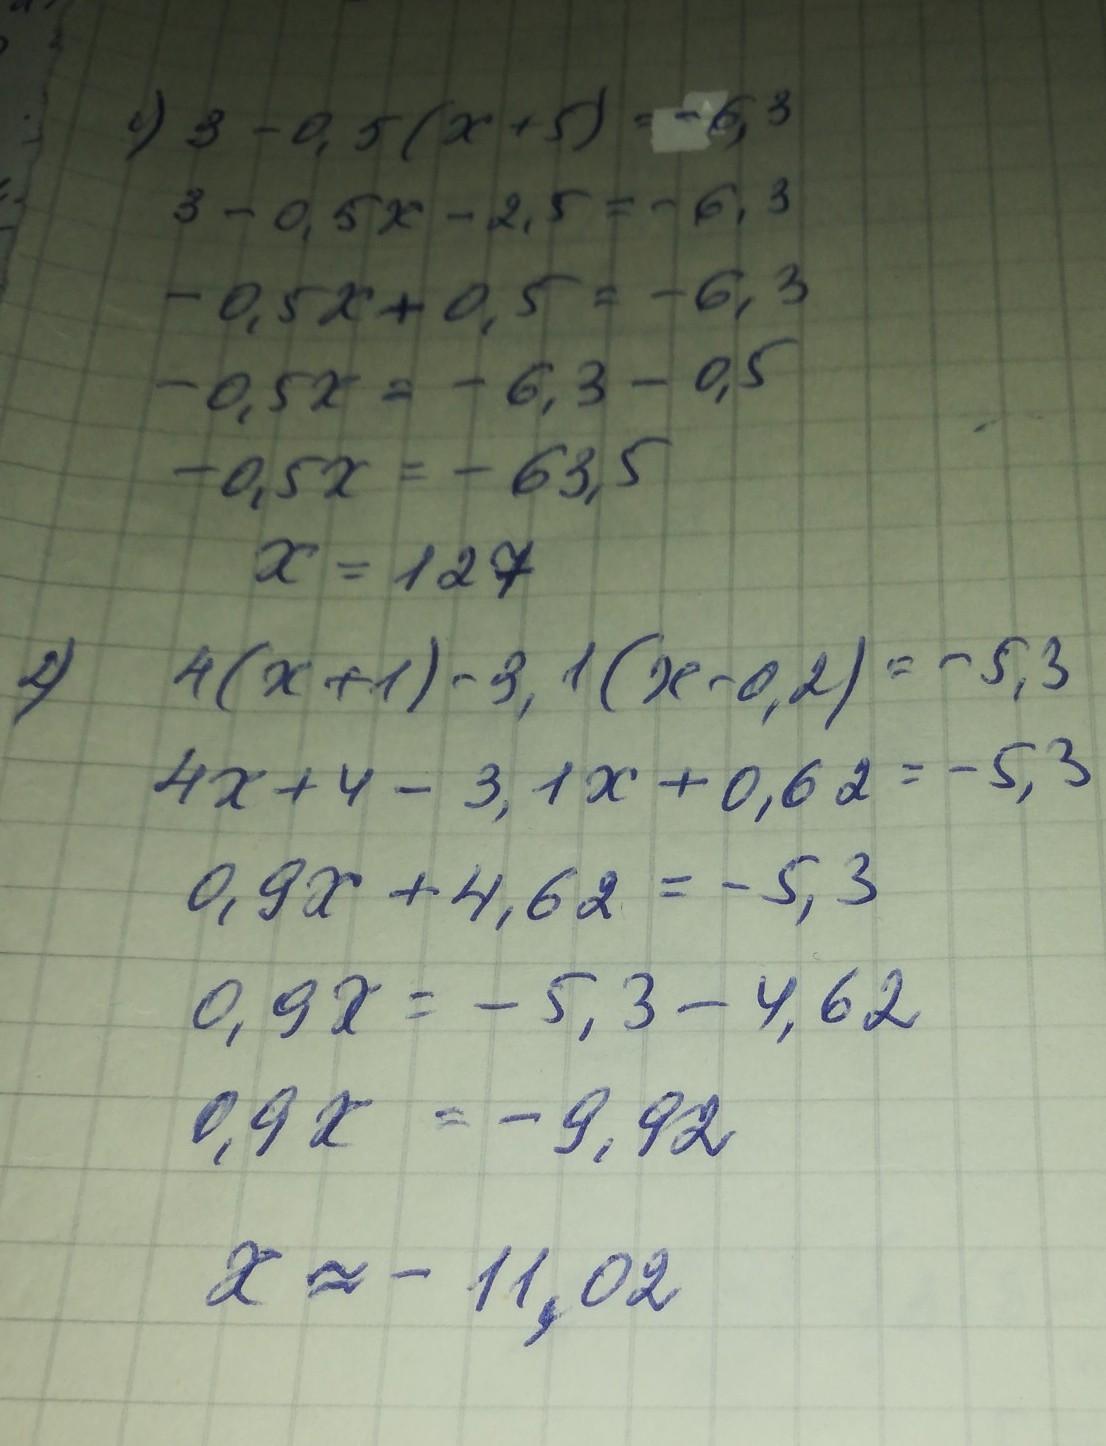 1) 3 - 0,5(x+5) = -6,3
3 - 0,5x - 2,5 = -6,3
-0,5x + 0,5 = -6,3
-0,5x = -6,3 - 0,5
-0,5x = -63,5
x = 127
2) 4(x+1) - 3,1(x-0,2) = -5,3
4x + 4 - 3,1x + 0,62 = -5,3
0,9x + 4,62 = -5,3
0,9x = -5,3 - 4,62
0,9x = -9,92
x ≈ -11,02